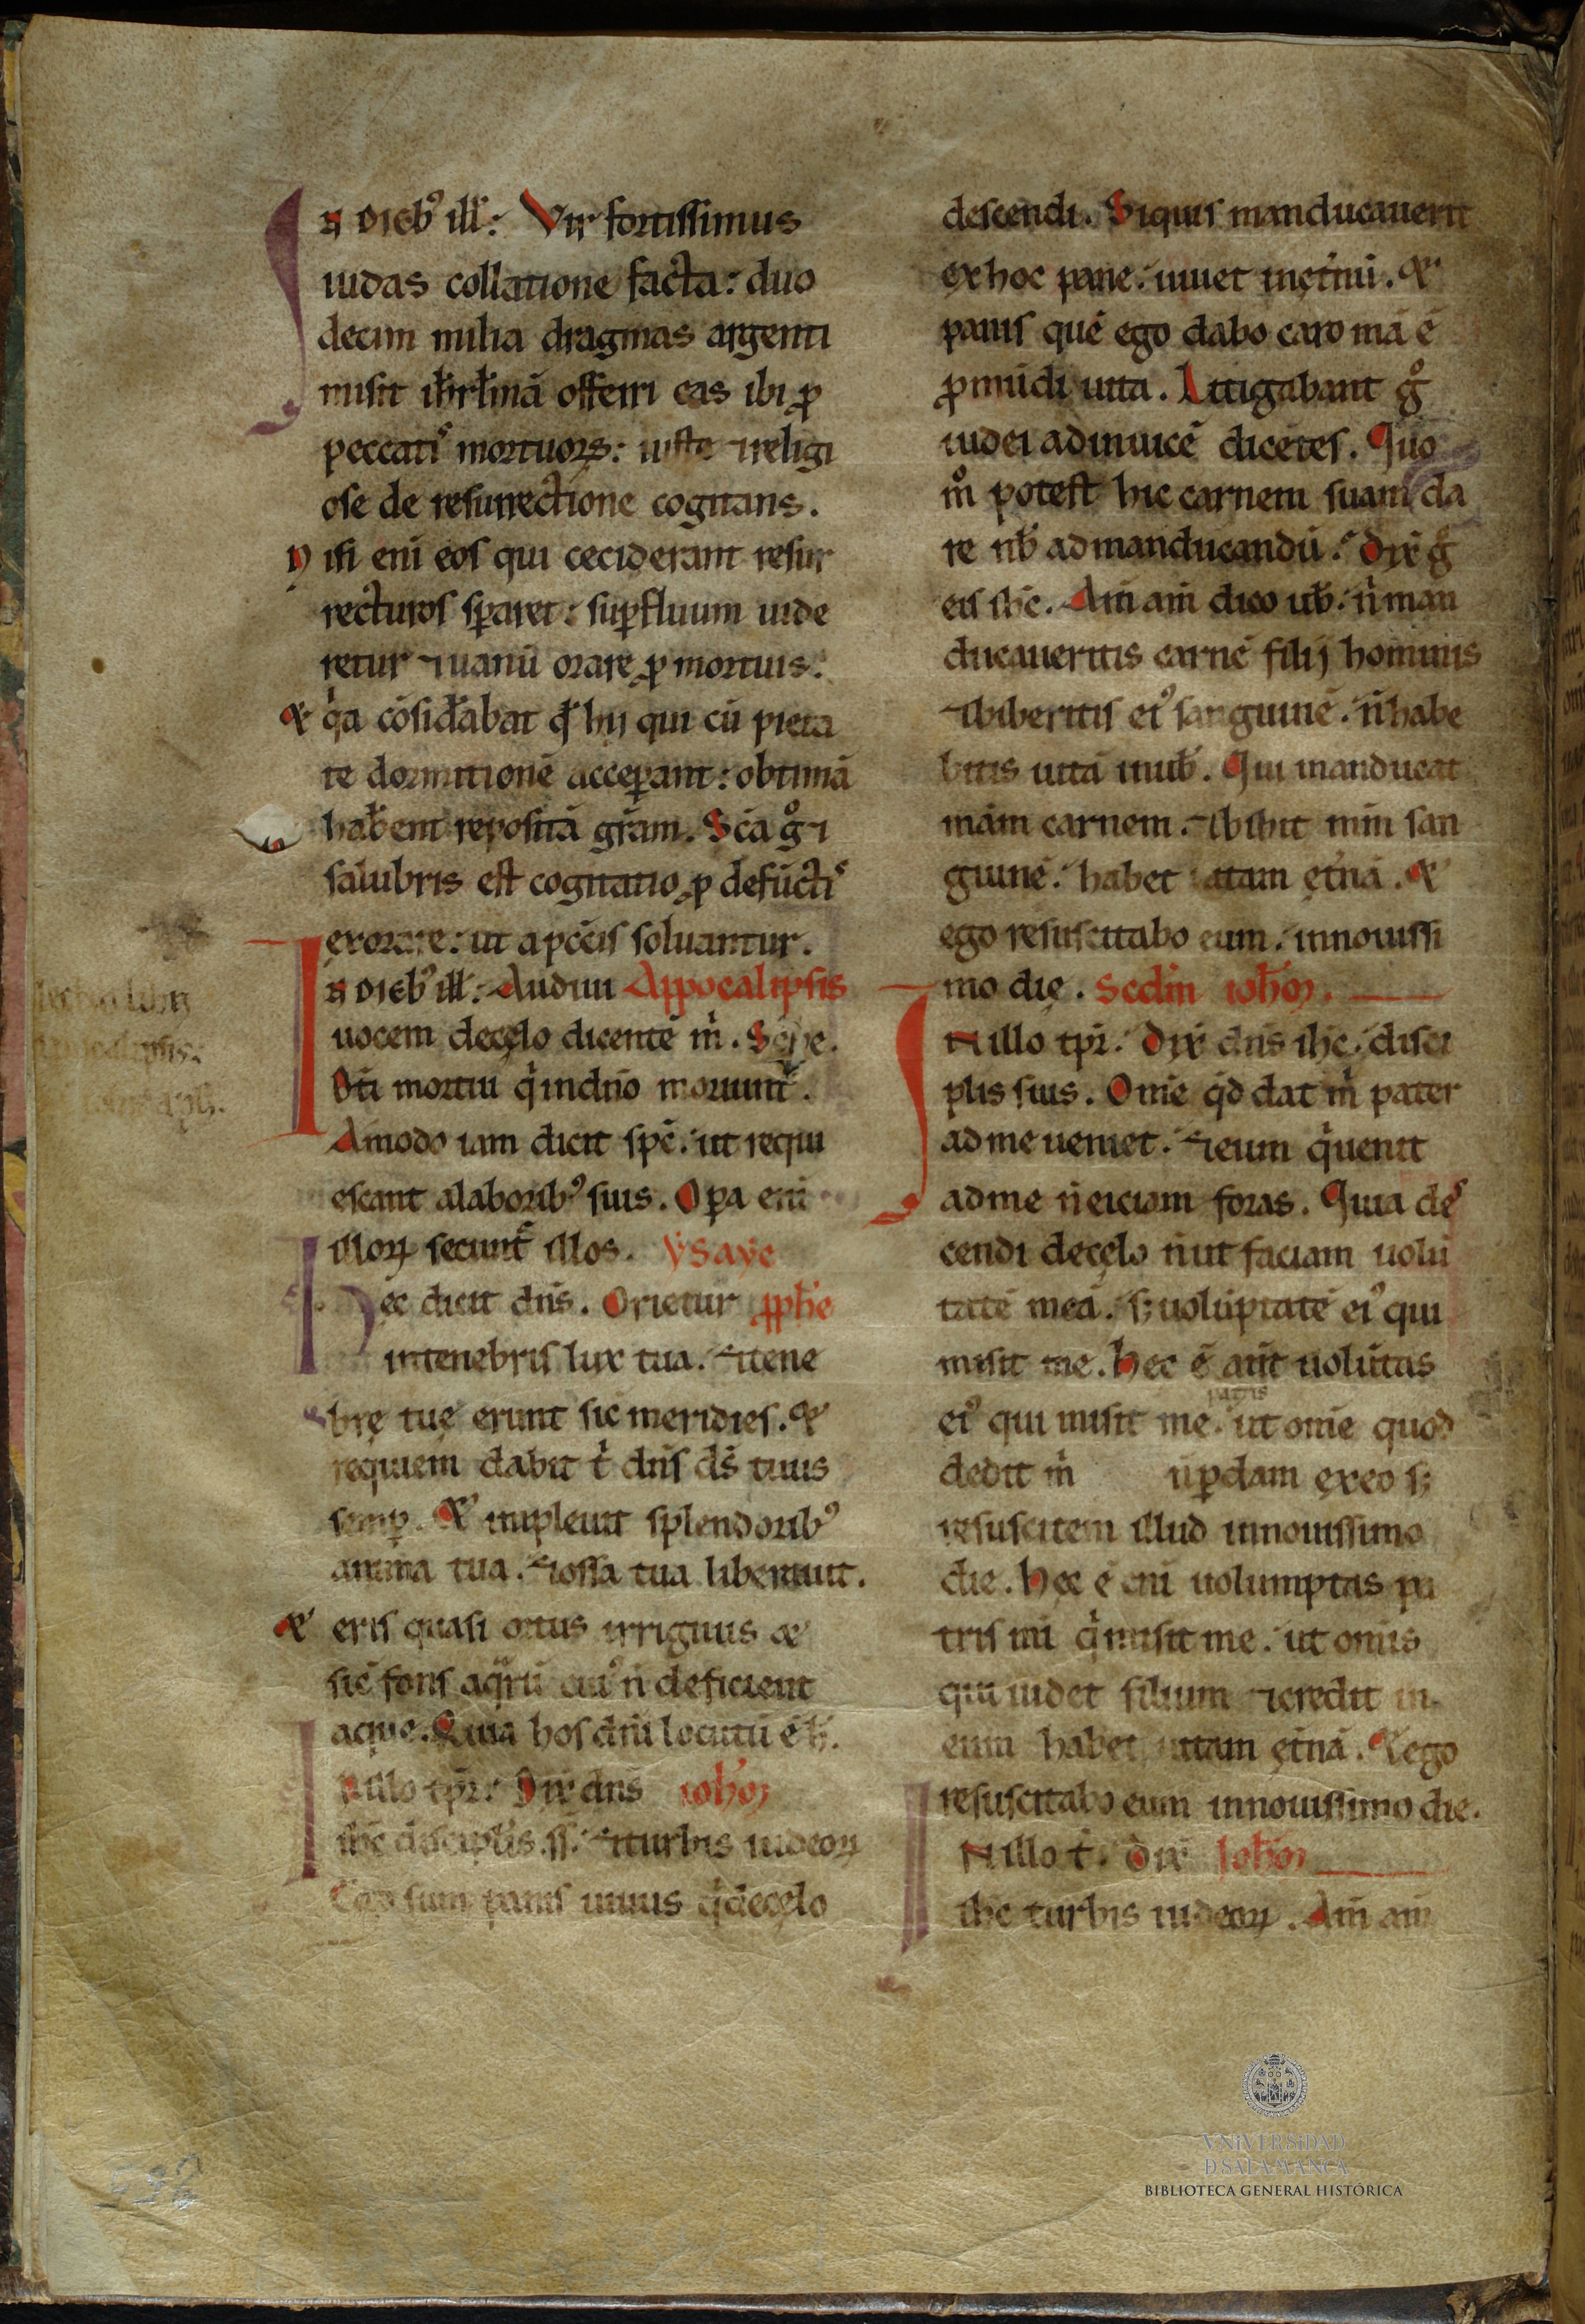 In dieb᷒ ill̃. Vir fortissimus
iudas collatione facta: duo
decim milia dragmas argenti
misit ihrl̃mã offerri eas ibi ꝓ
peccatis mortuoꝝ: iuste ⁊ religi
ose de resurrectione cogitans.
Nisi eni eos qui ceciderant resur
recturos sꝑaret: suꝑfluum uide
retur ⁊ uanũ orare ꝓ mortuis.
Et qͥa cõsid̃abat qd̃ hij qui cũ pieta
te dormitionẽ acceꝑant: obtimã
hab̃ent repositã grãm. Sc̃a gͦ ⁊
salubris est cogitatio ꝓ defũctis
exorare: ut a pccis soluantur.
In dieb᷒ ill̃. Audiui Appocalipsis
uocem de cęlo dicentẽ m̃. Scͥbe.
Bti mortui qͥ in dño moriunt᷑.
Amodo iam dicit sp̃c. ut requi
escant a laborib᷒ suis. Oꝑa eni
illoꝝ secunt᷑ illos. Ysaye
Hec dicit dñs. Orietur ꝓph̃e
in tenebris lux tua. ⁊ tene
brę tuę erunt sic meridies. Et
requiem dabit tͥ dñs ds̃ tuus
semꝑ. Et impleuit splendorib᷒
anima tua. ⁊ ossa tua liberauit.
Et eris quasi ortus irriguus et
sic fons aqͣrũ cui᷒ ñ deficient
aque. Quia hos dñi locutũ ẽ h̃.
In illo tp̃r. Dix̃ dñs ioh̃m
ihc̃ discipl̃is ss̃. ⁊ turbis iudeoꝝ
Ego sum panis uiuus qͥ de cęlo
descendi. Siquis manducauerit
ex hoc pane. uiuet in et̃nũ. Et
panis quẽ ego dabo caro mã ẽ
ꝓ mũdi uita. Litigabant gͦ
iudei adinuicẽ dicẽtes. Quo
mͦ potest hic carnem suam da
re nb̃ ad manducandũ. Dix̃ gͦ
eis ihc̃. Am̃ am̃ dico ub̃. ñ man
ducaueritis carnẽ filij hominis
⁊ biberitis ei᷒ sanguinẽ. ñ habe
bitis uitã in ub̃. Qui manducat
mãm carnem. ⁊ bibit mm̃ san
guinẽ. habet uitam et̃nã. Et
ego resuscitabo eum. in nouissi
mo dię. Sedm̃ ioh̃m.
In illo tp̃r. Dix̃ dñs ihc̃. disci
plis suis. Omẽ qd̃ dat mͥ pater
ad me ueniet. ⁊ eum qͥ uenit
ad me ñ eiciam foras. Quia des
cendi de cęlo ñ ut faciam uolũ
tatẽ meã. sꝫ uolũptatẽ ei᷒ qui
misit me. Hec ẽ aut̃ uolũtas
patris
ei᷒ qui misit me. ut omẽ quod
dedit mͥ ñ ꝑdam ex eo sꝫ
resuscitem illud in nouissimo
die. Hec ẽ eni uolumptas pa
tris mi qͥ misit me. ut omis
qui uidet filium ⁊ credit in
eum habet uitam et̃nã. Et ego
resuscitabo eum in nouissimo die.
In illo t̃. Dix̃ Ioh̃m
ihc̃ turbis iudeoꝝ. Am̃ am̃
532
VNiVERSiDAD
D SALAMANCA
BIBLIOTECA GENERAL HISTÓRICA